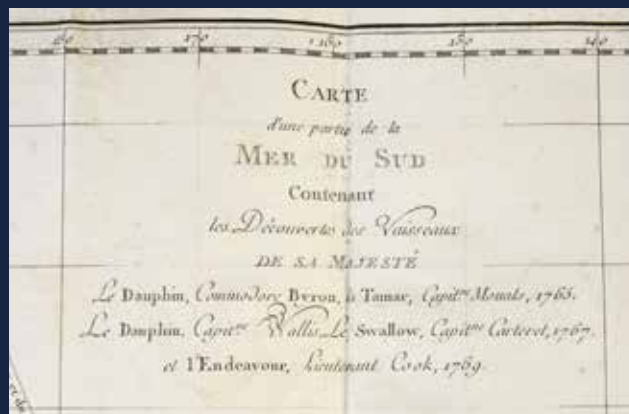 170 150 140
CARTE
d'une partie de la
MER DU SUD
Contenant
les Découvertes des Vaisseaux
DE SA MAJESTÉ
Le Dauphin, Commodore Byron, le Tamar, Capit.ne Mouats, 1765.
Le Dauphin, Capit.ne Wallis, Le Swallow, Capit.ne Carteret, 1767.
et l'Endeavour, Lieutenant Cook, 1769.